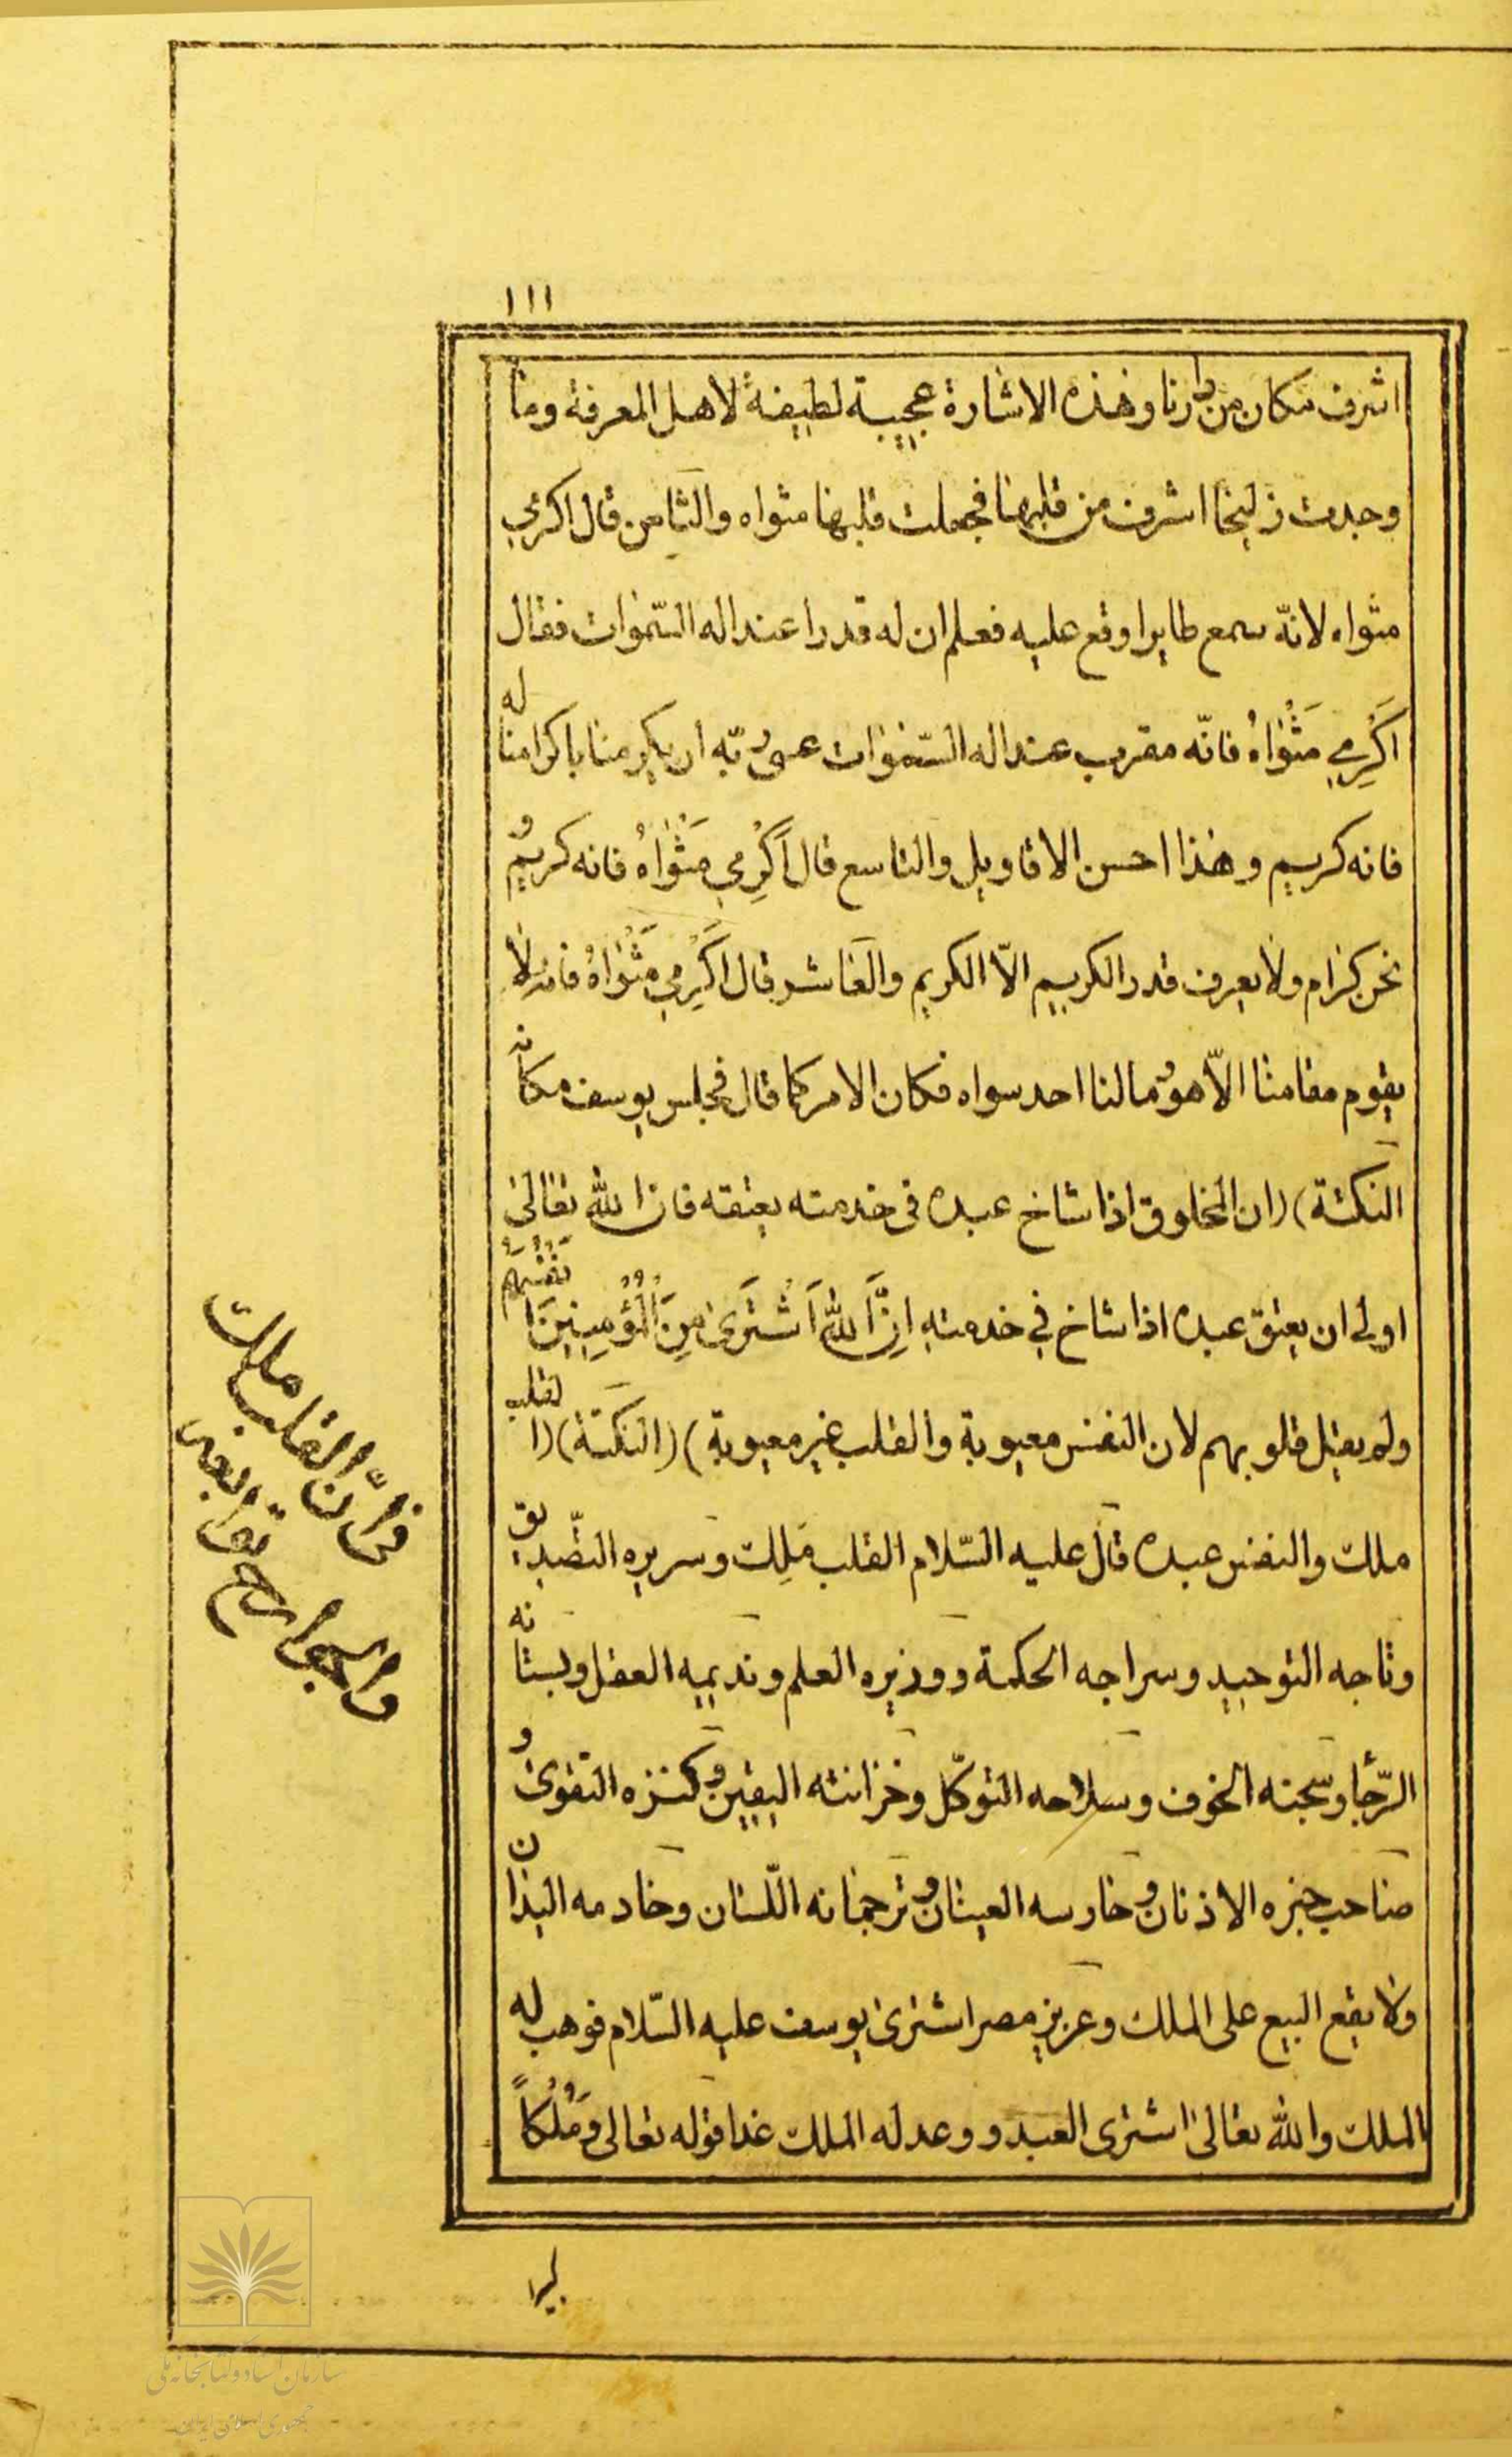 ١١١
اشرف مكان من دارنا وهذه الاشارة عجيبة لطيفة لاهل المعرفة وما
وجدت زليخا اشرف من قلبها فجعلت قلبها مثواه والثامن قال اكرمي
مثواه لانّه سمع طايرا وقع عليه فعلم ان له قدرا عند اله السّموات فقال
اَكْرِمِي مَثْوٰاهُ فانّه مقرب عند اله السّموات عسى ربّه ان يكرمنا باكرامنا له
فانه كريم وهذا احسن الاقاويل والتاسع قال اَكْرِمي مَثْوٰاهُ فانه كريم و
نحن كرام ولا يعرف قدر الكريم الاّ الكريم والعاشر قال اَكْرِمي مَثْوٰاهُ فانه لا
يقوم مقامنا الاّ هو وما لنا احد سواه فكان الامر كما قال فجلس يوسف مكانه
النكتة) (ان المخلوق اذا شاخ عبده فى خدمته يعتقه فان الله تعالى
اولى ان يعتق عبده اذا شاخ في خدمته اِنَّ اللّٰهَ اشْتَرىٰ مِنَ الْمُؤْمِنينَ اَنْفُسَهُمْ
ولم يقل قلوبهم لان النفس معيوبة والقلب غير معيوبة) (النكتة) (القلب
ملك والنفس عبده قال عليه السّلام القلب مَلِك وسريره التصّديق
وتاجه التوحيد وسراجه الحكمة ووزيره العلم ونديمه العقل وبستانه
الرّجا وسجنه الخوف وسلاحه التوكّل وخزانته اليقين وكنزه التقوى و
صاحب خبره الاذنان وحارسه العينان وترجمانه اللّسان وخادمه اليدان
ولا يقع البيع على الملك وعزيز مصر اشترى يوسف عليه السّلام فوهب له
الملك والله تعالى اشترى العبد ووعد له الملك غدا قوله تعالى وَمُلْكاً
كبيرا
فإنّ القلب ملك
والجوارح توابعه
سازمان اسناد و کتابخانه ملی
جمهوری اسلامی ایران